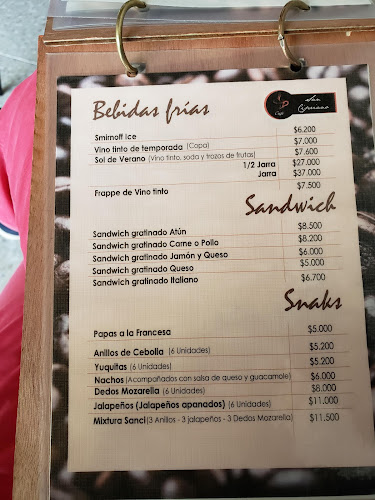 Bebidas frías
San Cipriano
Café
Smirnoff Ice $6.200
Vino tinto de temporada (Copa) $7.000
Sol de Verano (Vino tinto, soda y trozos de frutas) $7.600
1/2 Jarra $27.000
Jarra $37.000
Frappe de Vino tinto $7.500
Sandwich
Sandwich gratinado Atún $8.500
Sandwich gratinado Carne o Pollo $8.200
Sandwich gratinado Jamón y Queso $6.000
Sandwich gratinado Queso $5.000
Sandwich gratinado Italiano $6.700
Snaks
Papas a la Francesa $5.000
Anillos de Cebolla (6 Unidades) $5.200
Yuquitas (6 Unidades) $5.200
Nachos (Acompañados con salsa de queso y guacamole) $6.000
Dedos Mozarella (6 Unidades) $8.000
Jalapeños (Jalapeños apanados) (6 Unidades) $11.000
Mixtura Sanci (3 Anillos - 3 jalapeños - 3 Dedos Mozarella) $11.500